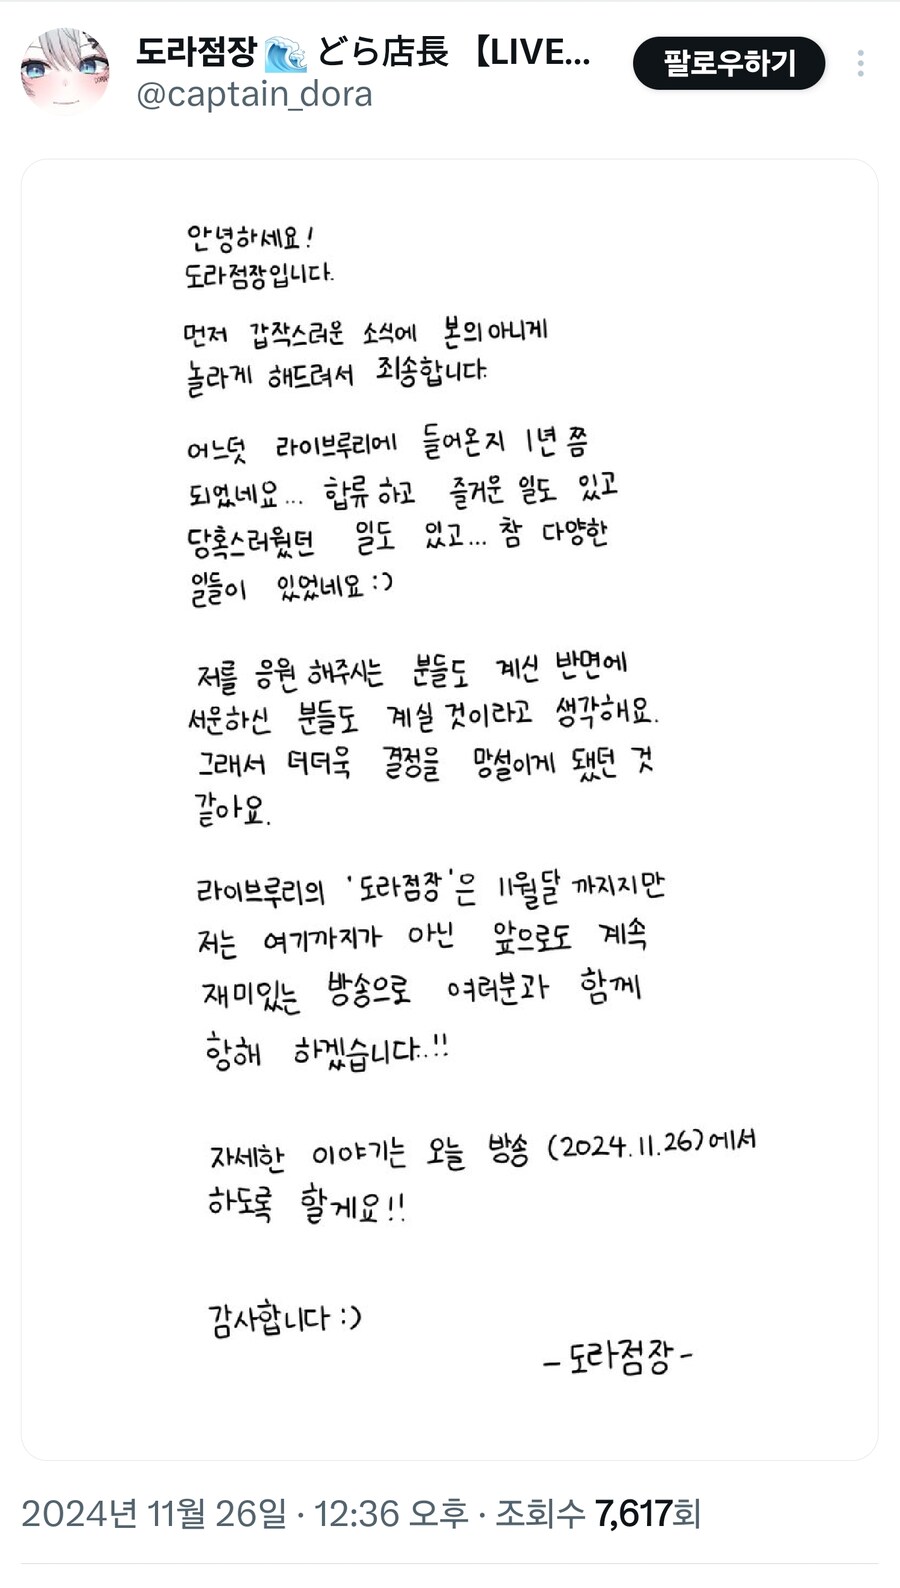 도라점장🌊どら店長 【LIVE...
팔로우하기
@captain_dora
안녕하세요!
도라점장입니다.
먼저 갑작스러운 소식에 본의 아니게
놀라게 해드려서 죄송합니다.
어느덧 라이브루리에 들어온지 1년 쯤
되었네요... 합류 하고 즐거운 일도 있고
당혹스러웠던 일도 있고... 참 다양한
일들이 있었네요 :)
저를 응원 해주시는 분들도 계신 반면에
서운하신 분들도 계실 것이라고 생각해요.
그래서 더더욱 결정을 망설이게 됐던 것
같아요.
라이브루리의 '도라점장'은 11월달 까지지만
저는 여기까지가 아닌 앞으로도 계속
재미있는 방송으로 여러분과 함께
항해 하겠습니다..!!
자세한 이야기는 오늘 방송 (2024.11.26)에서
하도록 할게요!!
감사합니다 :)
- 도라점장 -
2024년 11월 26일 · 12:36 오후 · 조회수 7,617회